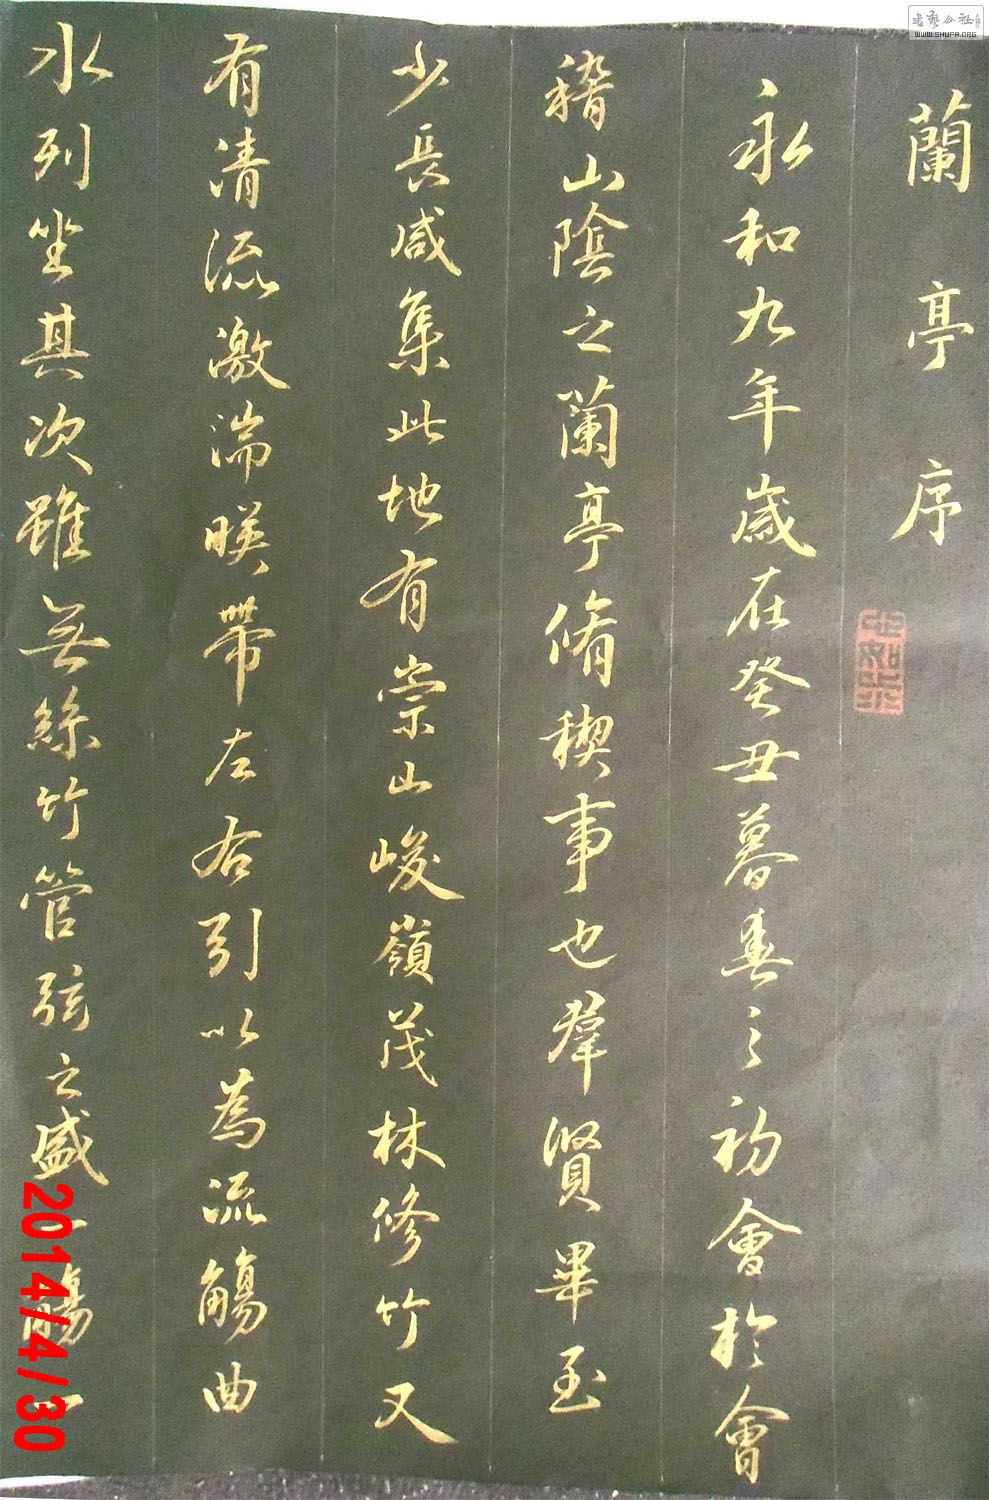 蘭亭序
永和九年歲在癸丑暮春之初會於會
稽山陰之蘭亭脩稧事也羣賢畢至
少長咸集此地有崇山峻嶺茂林修竹又
有清流激湍暎帶左右引以為流觴曲
水列坐其次雖無絲竹管弦之盛一觴一
2014/4/30
书艺公社
WWW.SHUFA.ORG